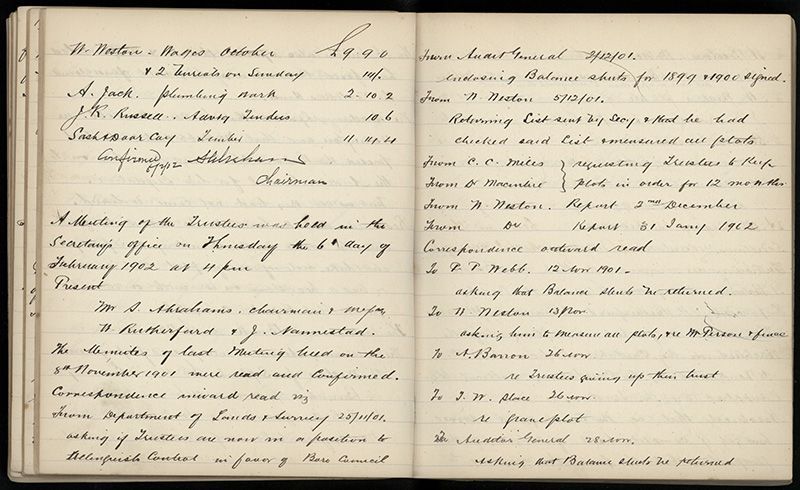 W. Weston - Wages October £9.9.0
& 2 burials on Sunday 10/.
A. Jack. plumbing work 2.10.2
J. K. Russell. Advtg Tenders 10.6
Sash & Door Coy Timber 11.11.4
Confirmed 6/2/02 S Abrahams
Chairman
A Meeting of the Trustees was held in the
Secretarys office on Thursday the 6th day of
February 1902 at 4 pm
Present
Mr S. Abrahams, chairman & Messrs
W. Rutherfurd & J. Nannestad.
The Minutes of last Meeting held on the
8th November 1901 were read and Confirmed.
Correspondence inward read viz
From Department of Lands & Survey 25/11/01.
asking if Trustees are now in a position to
relinquish Control in favor of Boro Council
From Audit General 2/12/01.
enclosing Balance sheets for 1899 & 1900 signed.
From W. Weston 5/12/01.
Returning List sent by Secy & that he had
checked said List & measured all plots
From C. C. Miles } requesting Trustees to Keep
From Dr Macintire } plots in order for 12 months.
From W. Weston. Report 2nd December
From Do Report 31 Jany 1902
Correspondence outward read
To P. P. Webb. 12 Nov 1901.
asking that Balance sheets be returned.
To W Weston 13 Nov.
asking him to measure all plots, & re Mr Person &
To A. Barron 26 Nov.
re Trustees giving up their trust
To J. W. Slace 26 Nov.
re grave plot
To Auditor General 28 Nov.
Asking that Balance sheets be returned